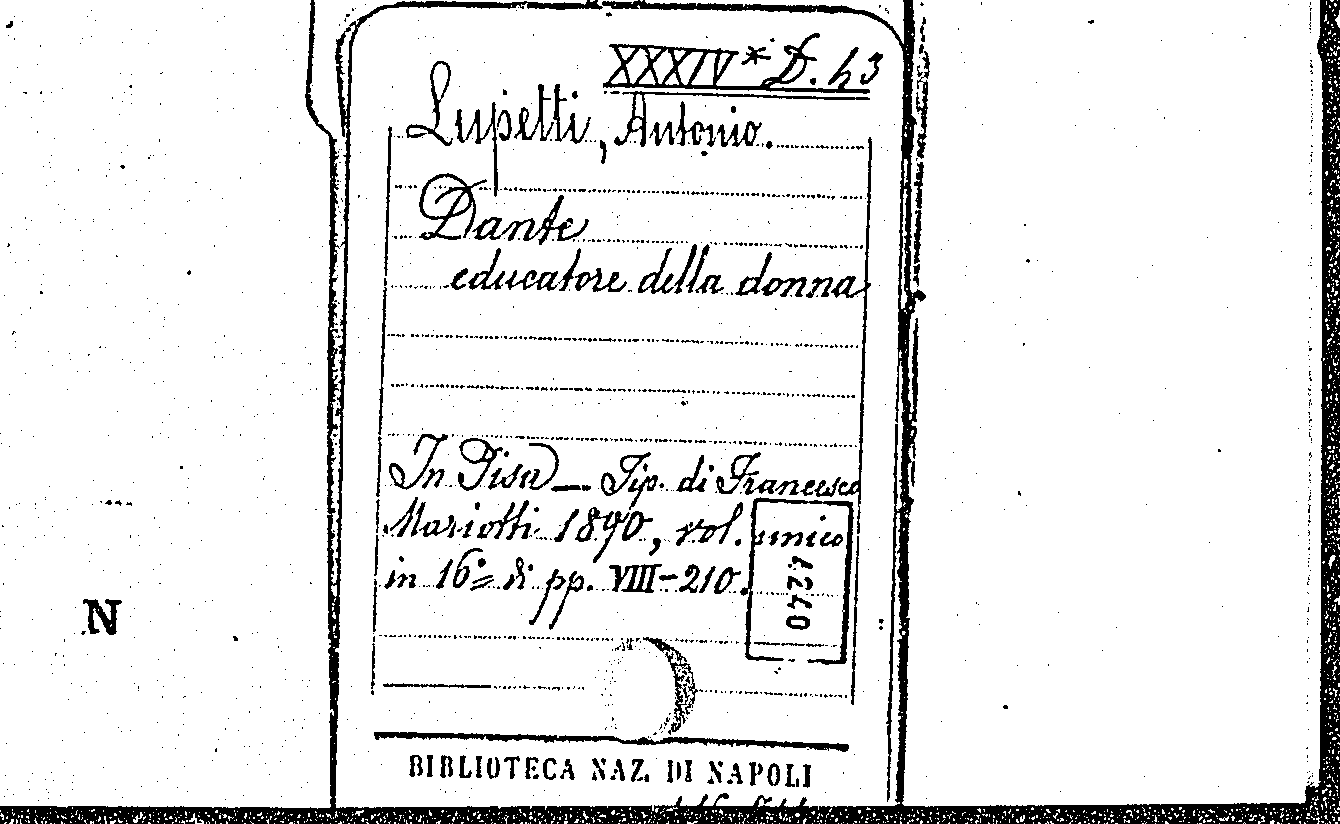 XXXIV * D. 43
Lupetti, Antonio.
Dante
educatore della donna
In Pisa — Tip. di Francesco
Mariotti 1890, vol. unico
in 16° di pp. VIII-210.
4240
N
BIBLIOTECA NAZ. DI NAPOLI